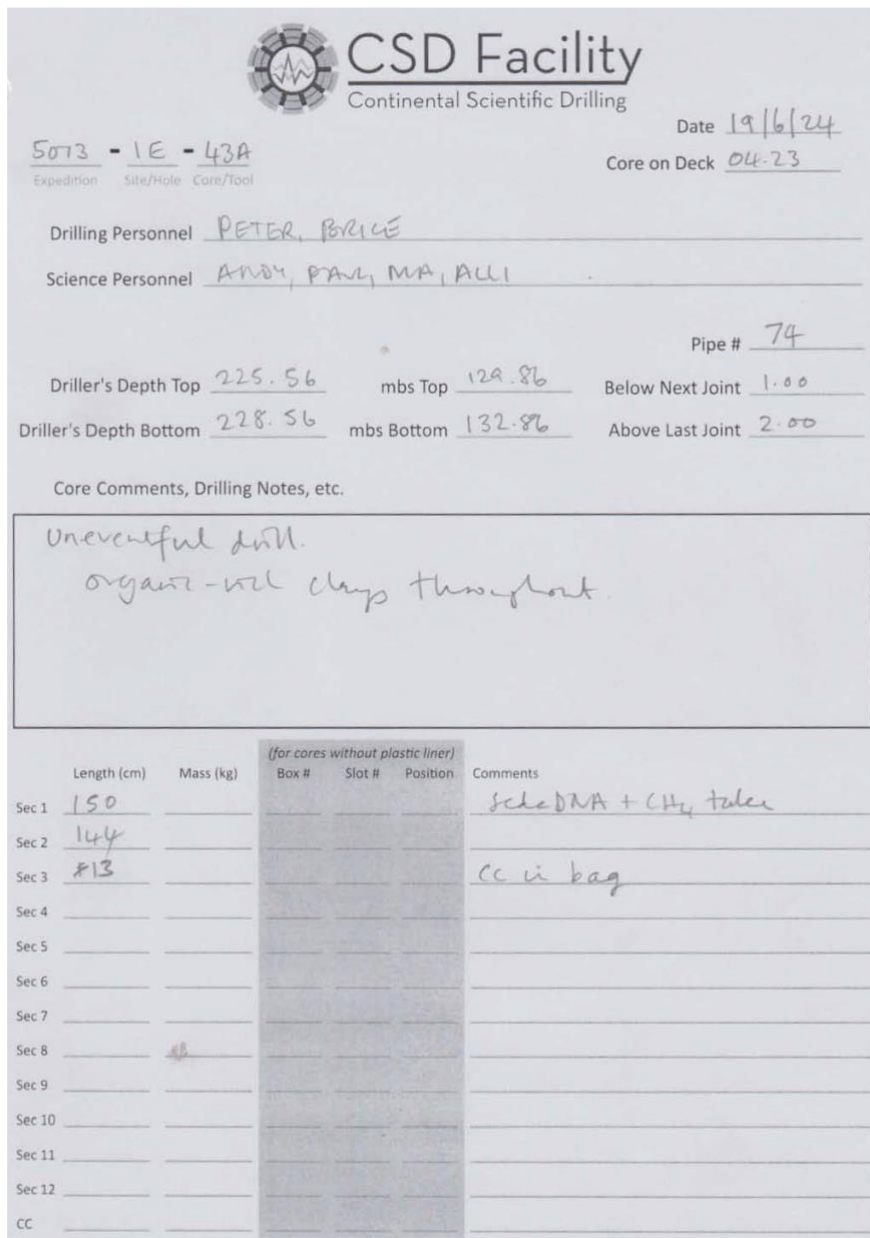 CSD Facility
Continental Scientific Drilling
Date 19/6/24
5073 - 1E - 43A
Expedition Site/Hole Core/Tool
Core on Deck 04.23
Drilling Personnel PETER, BRICE
Science Personnel ANDY, PAUL, MA, ALLI
Pipe # 74
Driller's Depth Top 225.56 mbs Top 129.86 Below Next Joint 1.00
Driller's Depth Bottom 228.56 mbs Bottom 132.86 Above Last Joint 2.00
Core Comments, Drilling Notes, etc.
Uneventful drill.
organic-rich clays throughout.
(for cores without plastic liner)
Length (cm) Mass (kg) Box # Slot # Position Comments
Sec 1 150 SedaDNA + CH4 taken
Sec 2 144
Sec 3 13 CC in bag
Sec 4
Sec 5
Sec 6
Sec 7
Sec 8
Sec 9
Sec 10
Sec 11
Sec 12
CC